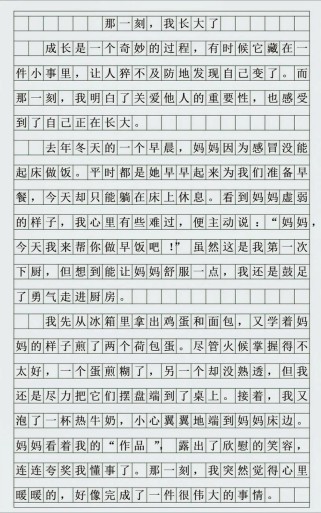 那一刻，我长大了
成长是一个奇妙的过程，有时候它藏在一
件小事里，让人猝不及防地发现自己变了。而
那一刻，我明白了关爱他人的重要性，也感受
到了自己正在长大。
去年冬天的一个早晨，妈妈因为感冒没能
起床做饭。平时都是她早早起来为我们准备早
餐，今天却只能躺在床上休息。看到妈妈虚弱
的样子，我心里有些难过，便主动说：“妈妈，
今天我来帮你做早饭吧！”虽然这是我第一次
下厨，但想到能让妈妈舒服一点，我还是鼓足
了勇气走进厨房。
我先从冰箱里拿出鸡蛋和面包，又学着妈
妈的样子煎了两个荷包蛋。尽管火候掌握得不
太好，一个蛋煎糊了，另一个却没熟透，但我
还是尽力把它们摆盘端到了桌上。接着，我又
泡了一杯热牛奶，小心翼翼地端到妈妈床边。
妈妈看着我的“作品”，露出了欣慰的笑容，
连连夸奖我懂事了。那一刻，我突然觉得心里
暖暖的，好像完成了一件很伟大的事情。